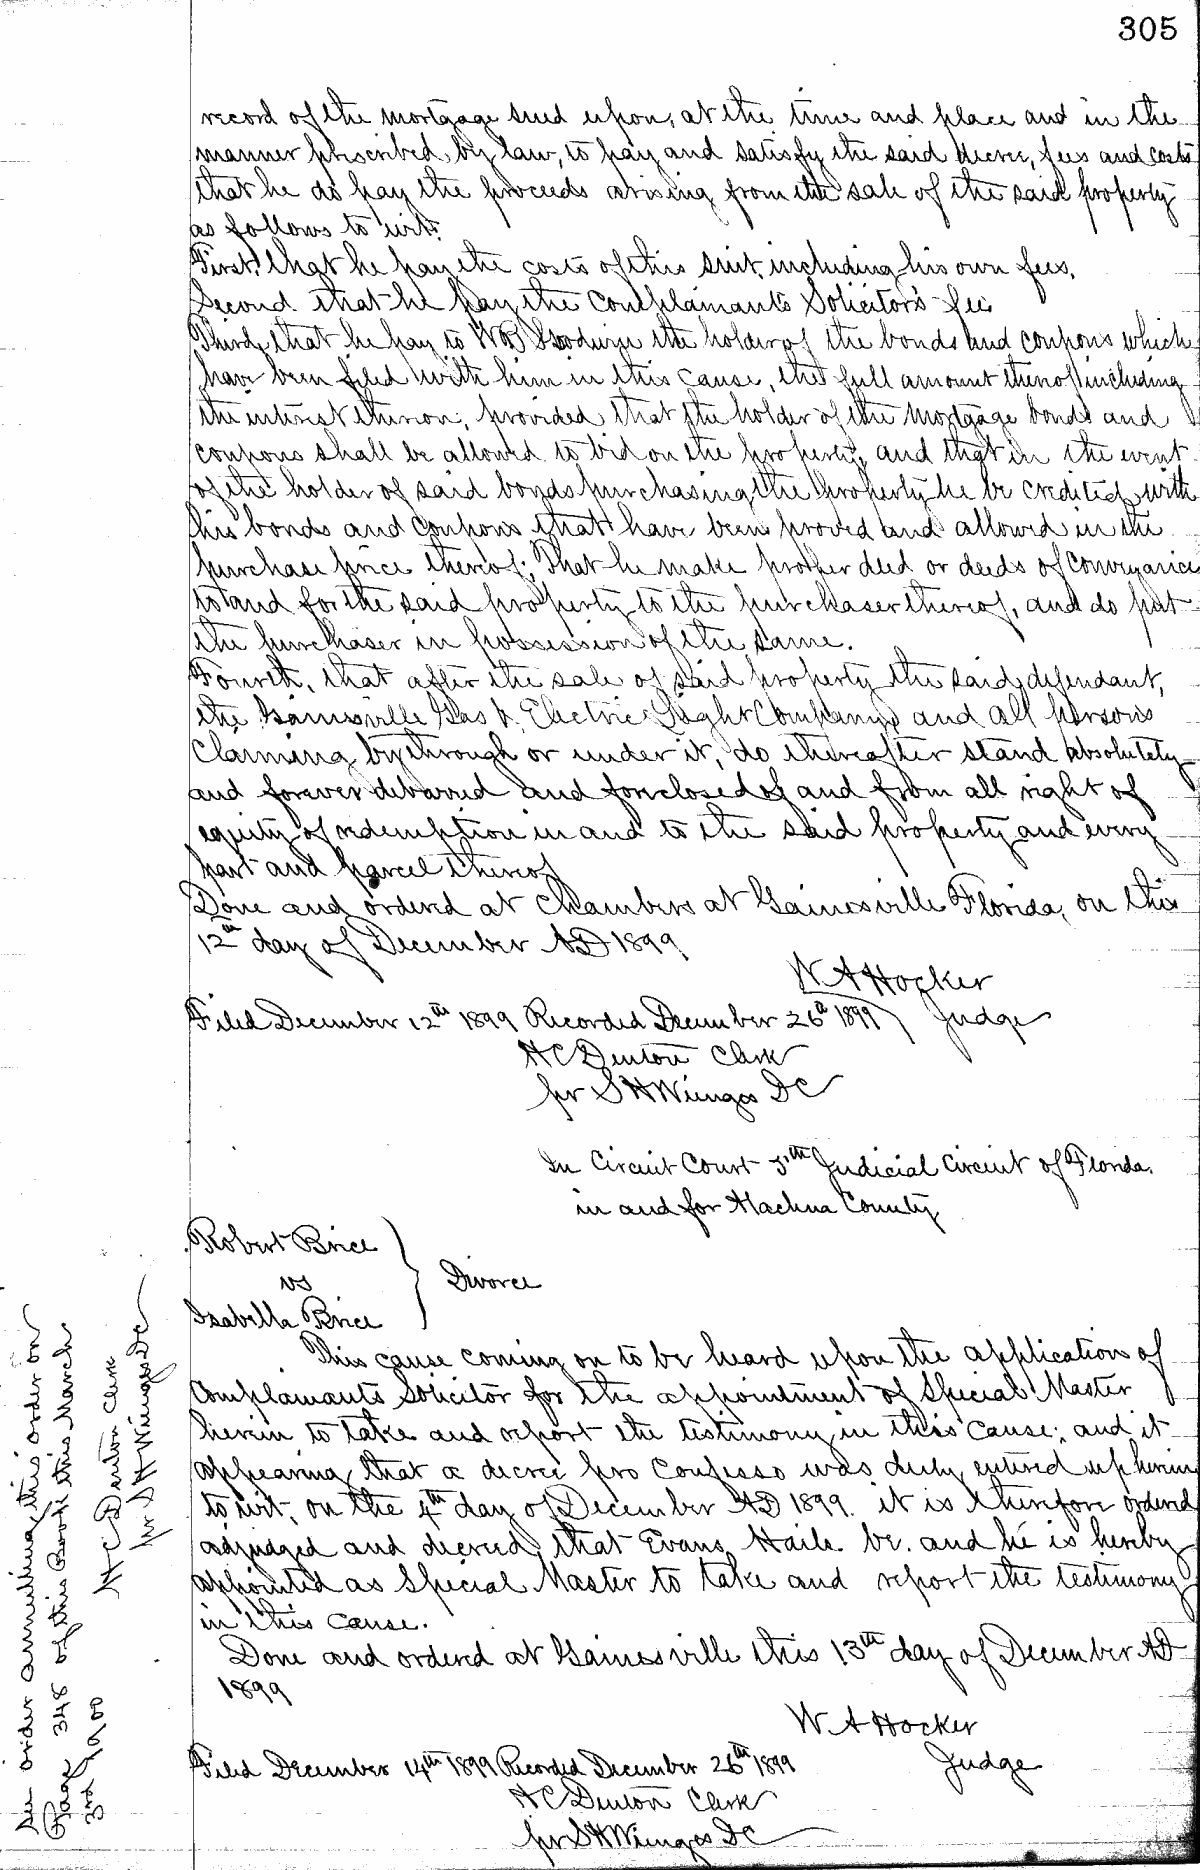 305
record of the mortgage sued upon, at the time and place and in the
manner prescribed by law, to pay and satisfy the said decree, fees and costs
that he do pay the proceeds arising from the sale of the said property
as follows to wit:
First, that he pay the costs of this suit, including his own fees.
Second that he pay the Complainants Solicitors fee
Third, that he pay to W R the holder of the bonds and coupons which
have been filed with him in this cause, the full amount thereof including
the interest thereon; provided that the holder of the mortgage bonds and
coupons shall be allowed to bid on the property, and that in the event
of the holder of said bonds purchasing the property he be credited with
his bonds and coupons that have been proved and allowed in the
purchase price thereof; That he make proper deed or deeds of conveyance
to and for the said property to the purchaser thereof, and do put
the purchaser in possession of the same.
Fourth, that after the sale of said property the said defendant,
the Gainesville Gas & Electric Light Company and all persons
claiming by through or under it, do thereafter stand absolutely
and forever debarred and foreclosed of and from all right of
equity of redemption in and to the said property and every
part and parcel thereof
Done and ordered at Chambers at Gainesville Florida, on this
12th day of December AD 1899
W A Hocker
Filed December 12th 1899 Recorded December 26th 1899 Judge
H C Denton Clerk
pr S H Wienges DC
In Circuit Court 5th Judicial Circuit of Florida.
in and for Alachua County
Robert Brice
vs Divorce
Isabella Brice
This cause coming on to be heard upon the application of
Complainants Solicitor for the appointment of Special Master
herein to take and report the testimony in this cause; and it
appearing that a decree pro confesso was duly entered up herein
to wit, on the 4th day of December AD 1899. it is therefore ordered
adjudged and decreed, that Evans Haile be. and he is hereby
appointed as Special Master to take and report the testimony
in this cause.
Done and ordered at Gainesville this 13th day of December AD
1899
W A Hocker
Filed December 14th 1899 Recorded December 26th 1899 Judge
H C Denton Clerk
pr S H Wienges DC
See order annulling this order on
Page 348 of this Book this March
3rd 1900
H C Denton Clerk
pr S H Wienges DC